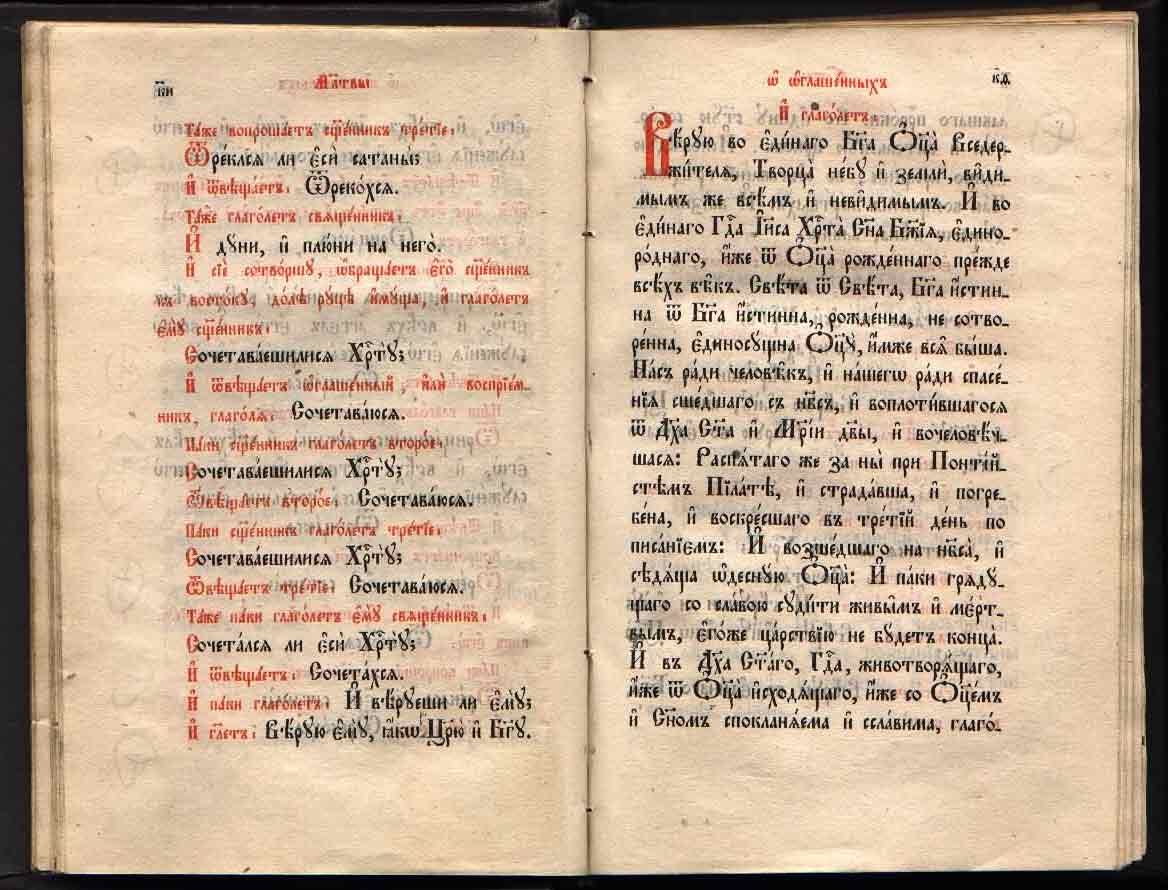 к҃и
Мл҃твы
Та́же вопроша́етъ сщ҃е́нникъ тре́тїе:
Ѿре́клсѧ ли є҆сѝ сатаны̀;
И҆ ѿвѣща́етъ: Ѿреко́хсѧ.
Та́же глаго́летъ свѧще́нникъ:
И҆ ду́ни, и҆ плю́ни на него̀.
И҆ сїѐ сотво́ршу, ѡ҆браща́етъ є҆го̀ сщ҃е́нникъ
къ восто́ку до́лѣ ру́цѣ и҆му́ща, и҆ глаго́летъ
є҆мꙋ̀ сщ҃е́нникъ:
Сочетава́ешилисѧ Хрⷭ҇тꙋ̀;
И҆ ѿвѣща́етъ ѡ҆глаше́нный, и҆лѝ воспрїе́м-
никъ, глаго́лѧ: Сочетава́юсѧ.
Па́ки сщ҃е́нникъ глаго́летъ второ́е:
Сочетава́ешилисѧ Хрⷭ҇тꙋ̀;
Ѿвѣща́етъ второ́е: Сочетава́юсѧ.
Па́ки сщ҃е́нникъ глаго́летъ тре́тїе:
Сочетава́ешилисѧ Хрⷭ҇тꙋ̀;
Ѿвѣща́етъ тре́тїе: Сочетава́юсѧ.
Та́же па́ки глаго́летъ є҆мꙋ̀ свѧще́нникъ:
Сочета́лсѧ ли є҆сѝ Хрⷭ҇тꙋ̀;
И҆ ѿвѣща́етъ: Сочета́хсѧ.
И҆ па́ки глаго́летъ: И҆ вѣ́руеши ли є҆мꙋ̀;
И҆ гл҃етъ: Вѣ́рую є҆мꙋ̀, ꙗ҆́кѡ Цр҃ю̀ и҆ Бг҃у.
ѡ҆ ѡ҆глаше́нныхъ
И҆ глаго́летъ:
Вѣ́рую во є҆ди́наго Бг҃а Ѻ҆ц҃а̀ Вседер-
жи́телѧ, Творца̀ не́бу и҆ землѝ, ви́ди-
мымъ же всѣ̑мъ и҆ неви́димымъ. И҆ во
є҆ди́наго Гдⷭ҇а І҆и҃са Хрⷭ҇та̀ Сн҃а Бж҃їѧ, є҆дино-
ро́днаго, и҆́же ѿ Ѻ҆ц҃а̀ рожде́ннаго пре́жде
всѣ́хъ вѣ̑къ. Свѣ́та ѿ Свѣ́та, Бг҃а и҆́стин-
на ѿ Бг҃а и҆́стинна, рожде́нна, не сотво-
ре́нна, є҆диносу́щна Ѻ҆ц҃у̀, и҆́мже всѧ̑ бы́ша.
На́съ ра́ди человѣ̑къ, и҆ на́шегѡ ра́ди спасе́-
нїѧ сше́дшаго съ нб҃съ, и҆ воплоти́вшагосѧ
ѿ Дх҃а Ст҃а и҆ Мр҃і́и дв҃ы, и҆ вочеловѣ́ч-
шасѧ: Распѧ́таго же за ны̀ при Понті́й-
стѣмъ Пїла́тѣ, и҆ страда́вша, и҆ погре-
бе́на, и҆ воскре́сшаго въ тре́тїй де́нь по
писа́нїемъ: И҆ возше́дшаго на нб҃са̀, и҆
сѣдѧ́ща ѡ҆десну́ю Ѻ҆ц҃а̀: И҆ па́ки грѧду́-
щаго со сла́вою суди́ти живы̑мъ и҆ ме́рт-
вымъ, є҆го́же ца́рствїю не бу́детъ конца̀.
И҆ въ Дх҃а Ст҃а́го, Гдⷭ҇а, животворѧ́щаго,
и҆́же ѿ Ѻ҆ц҃а̀ и҆сходѧ́щаго, и҆́же со Ѻ҆ц҃е́мъ
и҆ Сн҃омъ спокланѧ́ема и҆ ссла́вима, глаго́-